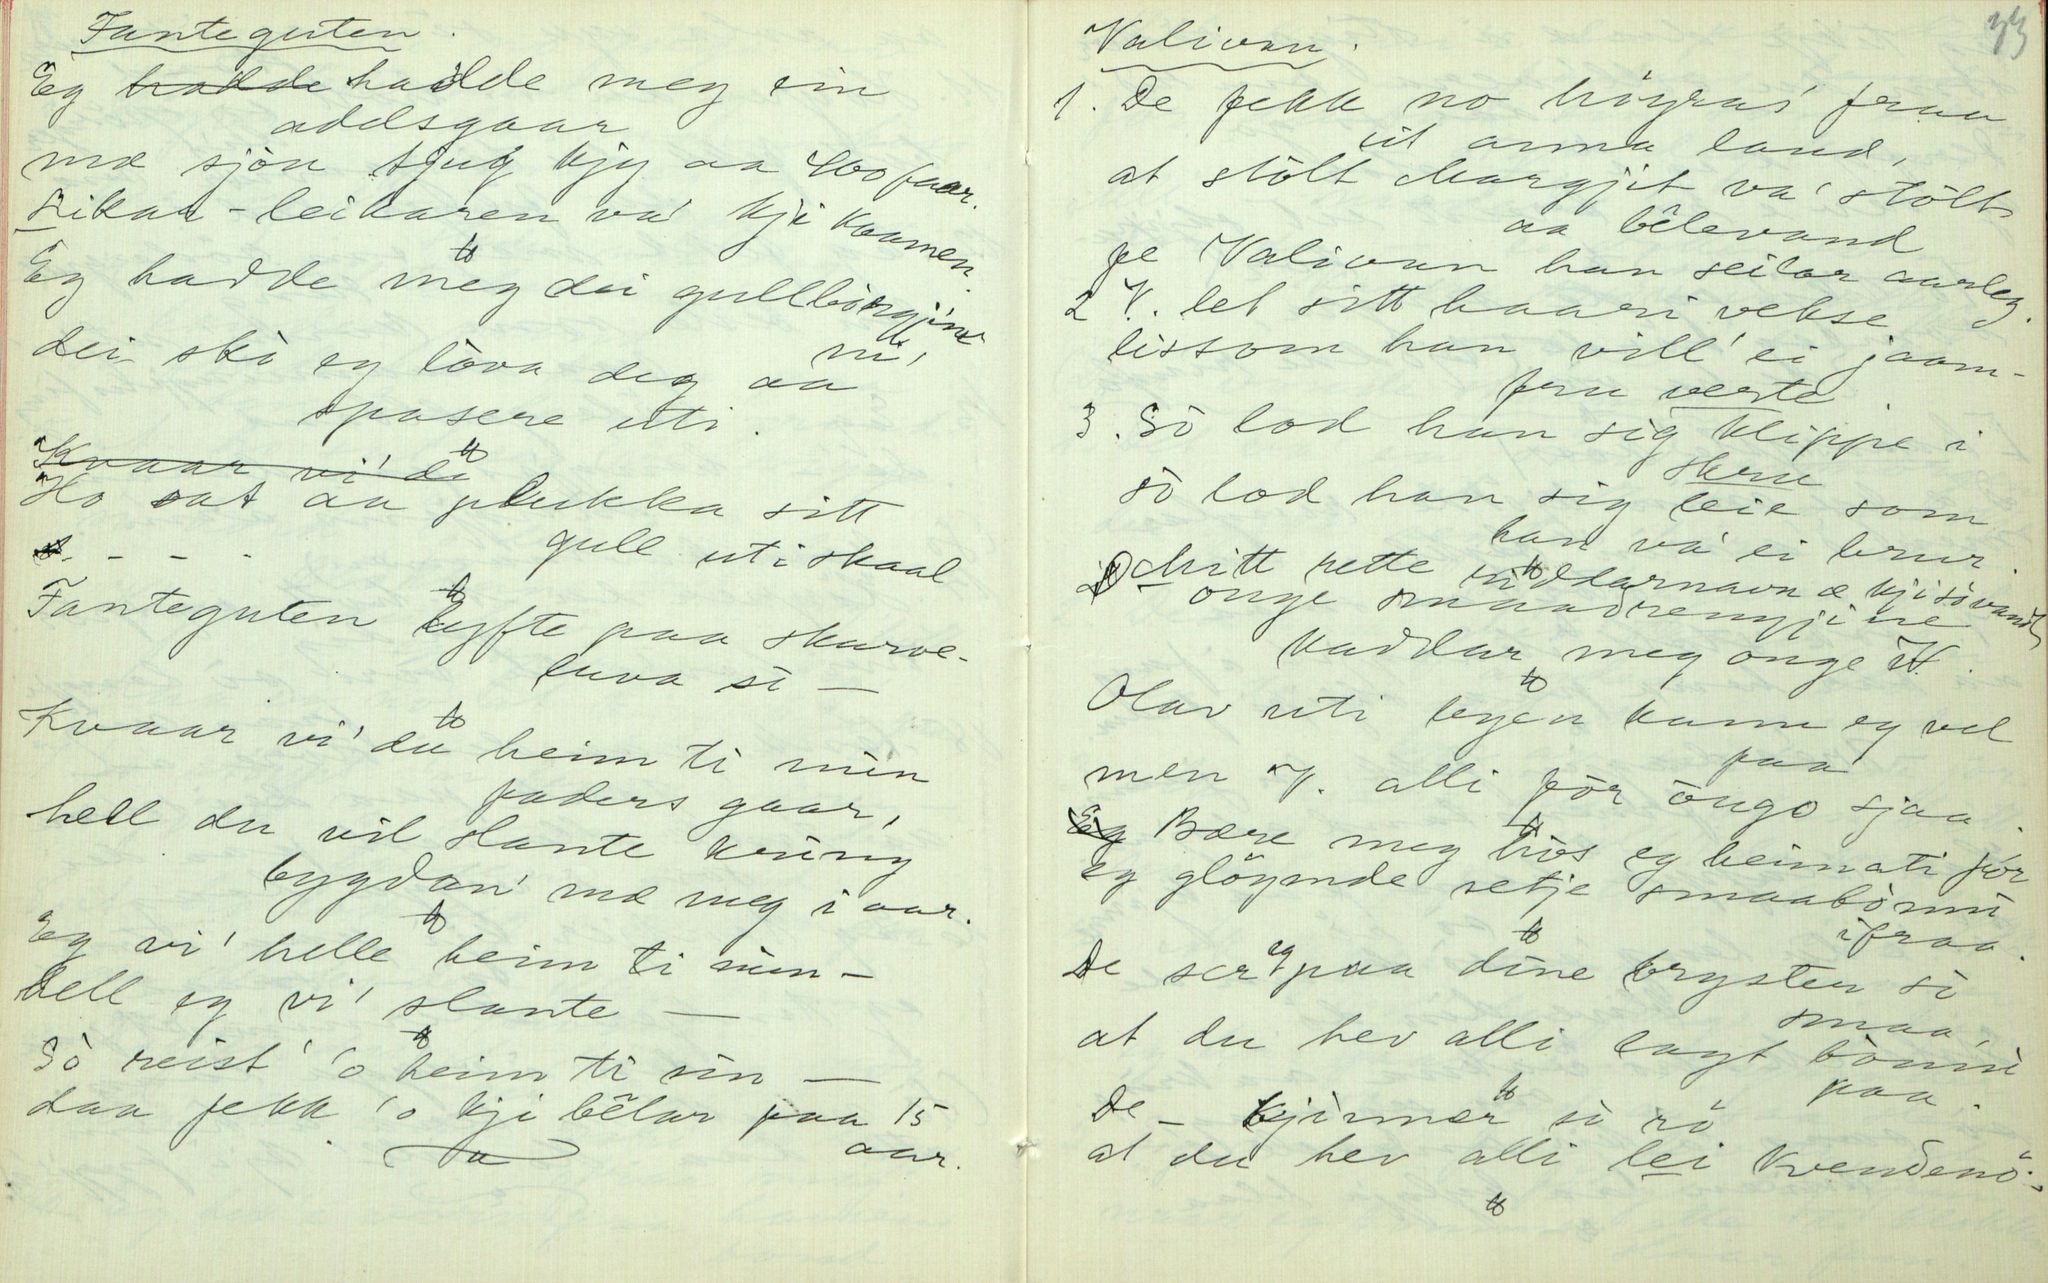 Fanteguten.
Eg hadde hadde meg ein
addsgaar
mæ sjön tjug kjy aa 400 faar.
Rikar-leikaren va' kji kaamen.
Eg hadde meg dei gullböngjine
ni,
dei skò eg lòva deg aa
spasere uti.
Kvaar vi' du
Ho sat aa plukka sitt
gull uti skaal
- - -
Fanteguten lyfte paa skarve-
luva si —
Kvaar vi' du heim ti min
faders gaar,
hell du vil slante kring
bygdan' mæ meg i aar.
Eg vi' helle heim ti min —
hell eg vi' slante —
Sò reist' 'o heim ti sin —
daa fekk 'o kji bêlar paa 15
aar.
33
Valivan.
1. De fekk no höyras' fraa
ut anna land,
at stolt Margjit va' stolt
aa bêlevand
fe Valivan han seilar aarleg.
2 V. let sitt haari vekse
lissom han vill' ei jaam-
fru verte.
3. Sò lod han sig klippe i
skru
sò lod han sig leie som
han va' ei brur.
Mitt rette riddarnavn æ kji sò vandt
onge smaadrengjine
kaddar meg onge V.
Olav uti byen kann eg vel
paa
men V. alli för ougo sjaa.
Eg Bære meg trös eg heimati för
eg glöymde setje smaabònni
ifraa.
De ser eg paa dine brysten sò
smaa,
at du hev alli lagt bònni
paa.
De — kjinnær sò rö
at du hev alli lei kvendenö.